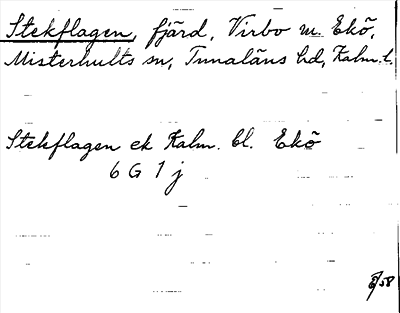 Stekflagen, fjärd, Virbo m. Ekö,
Misterhults sn, Tunaläns hd, Kalm. l.
Stekflagen ek Kalm. bl. Ekö
6 G 1 j